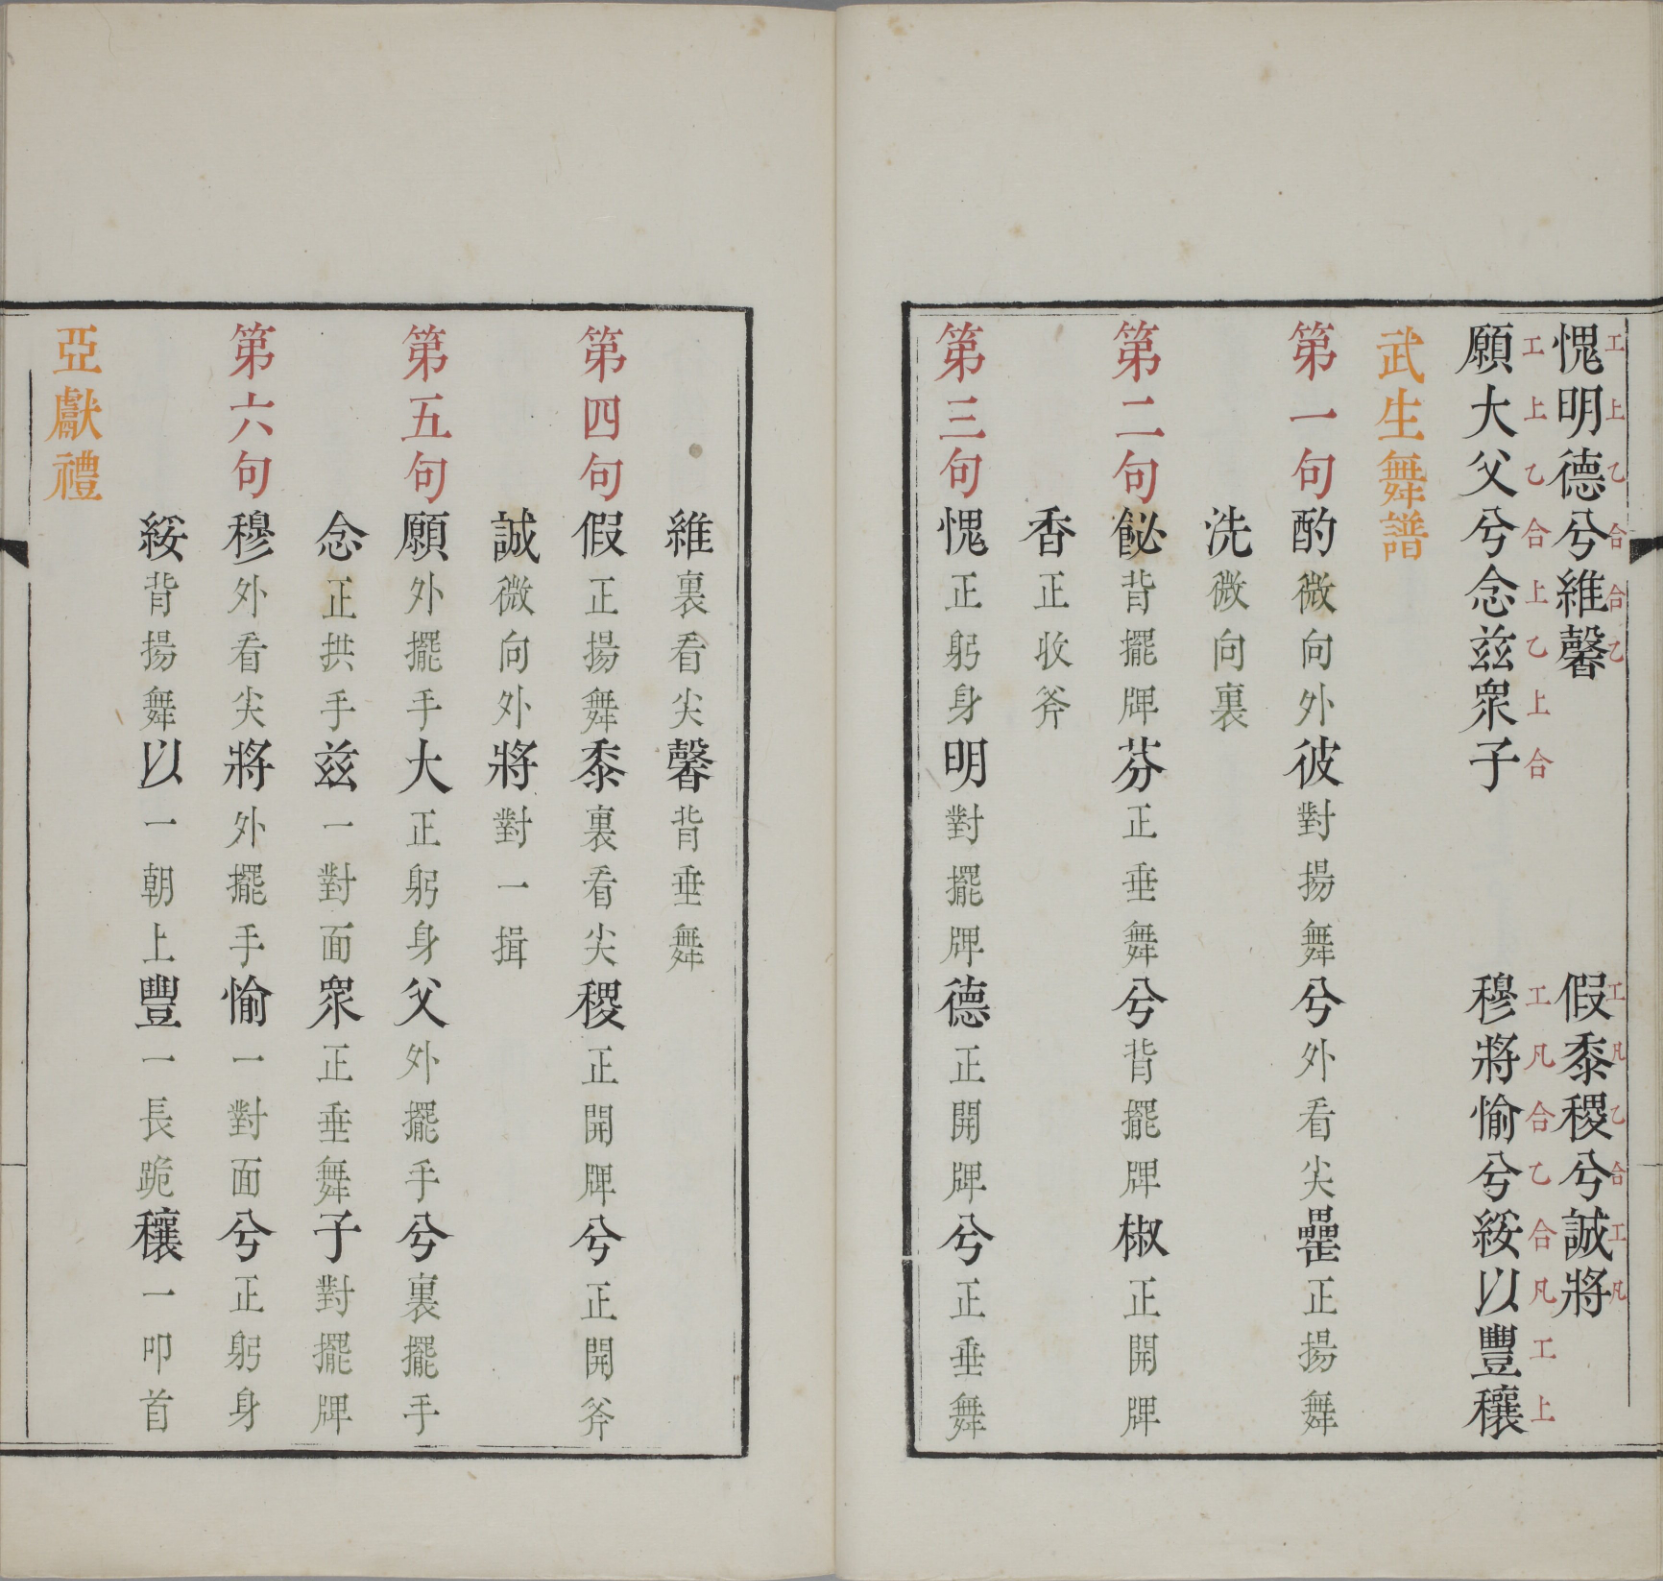 愧明德兮維馨　假黍稷兮誠將
工上乙合合乙　工凡乙合工凡
願大父兮念兹衆子　穆將愉兮綏以豐穰
工上乙合上乙上合　工凡合乙合凡工上
武生舞譜
第一句酌微向外彼對揚舞兮外看尖罍正揚舞
洗微向裏
第二句飶背擺牌芬正垂舞兮背擺牌椒正開牌
香正收斧
第三句愧正躬身明對擺牌德正開牌兮正垂舞
維裏看尖馨背垂舞
第四句假正揚舞黍裏看尖稷正開牌兮正開斧
誠微向外將對一揖
第五句願外擺手大正躬身父外擺手兮裏擺手
念正拱手兹一對面衆正垂舞子對擺牌
第六句穆外看尖將外擺手愉一對面兮正躬身
綏背揚舞以一朝上豐一長跪穰一叩首
亞獻禮